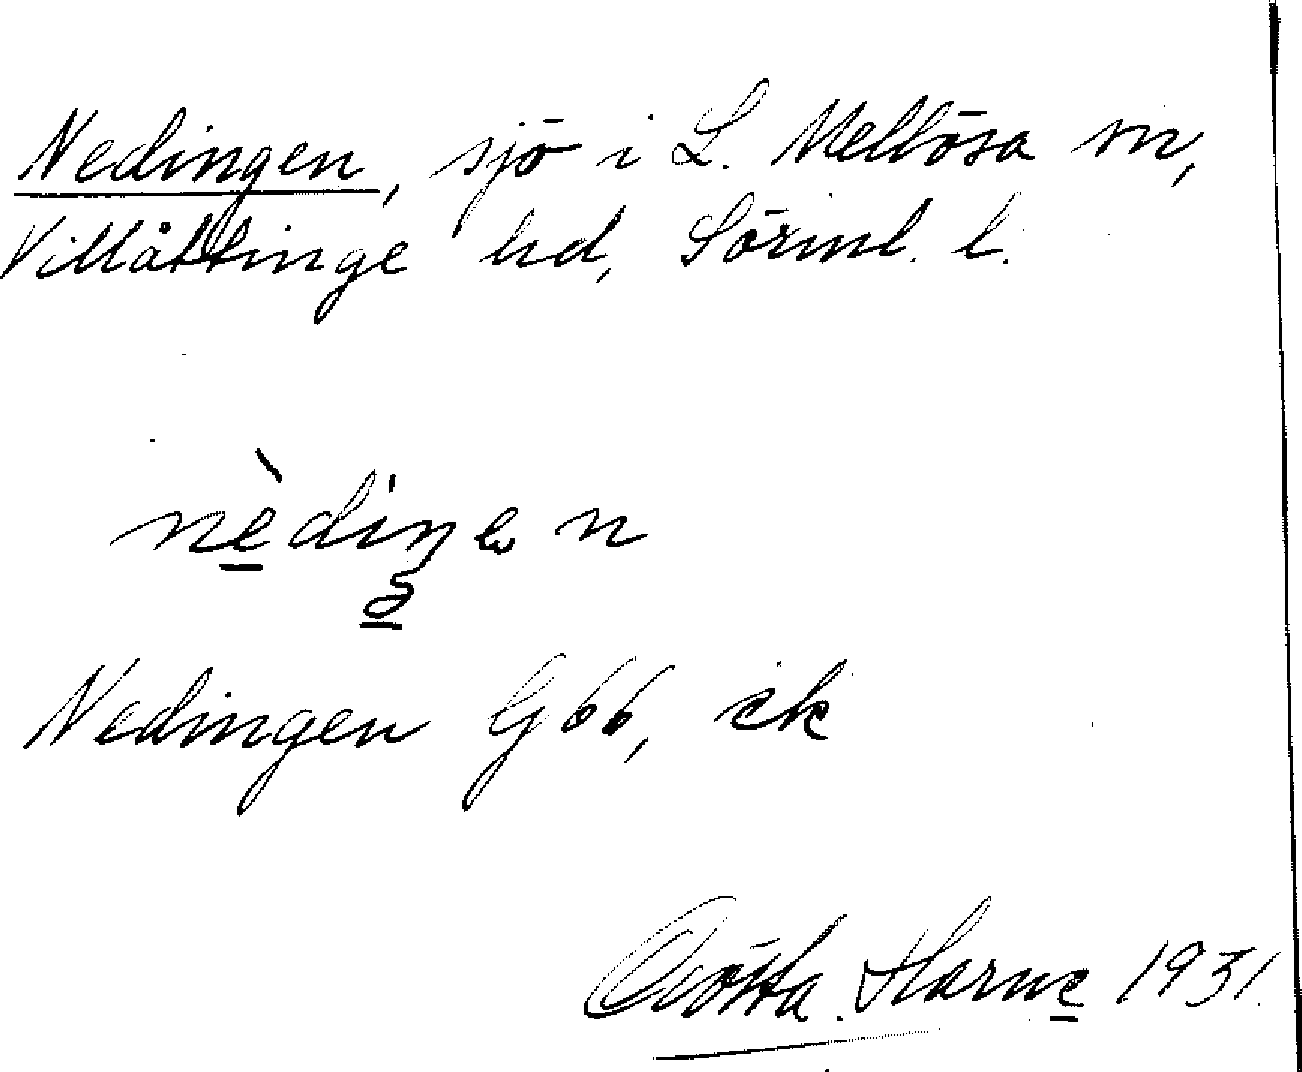 Nedingen, sjö i L. Mellösa sn,
Villåttinge hd, Sörml. l.
nèdiŋen
Nedingen G66, ek
Gösta Harne 1931.